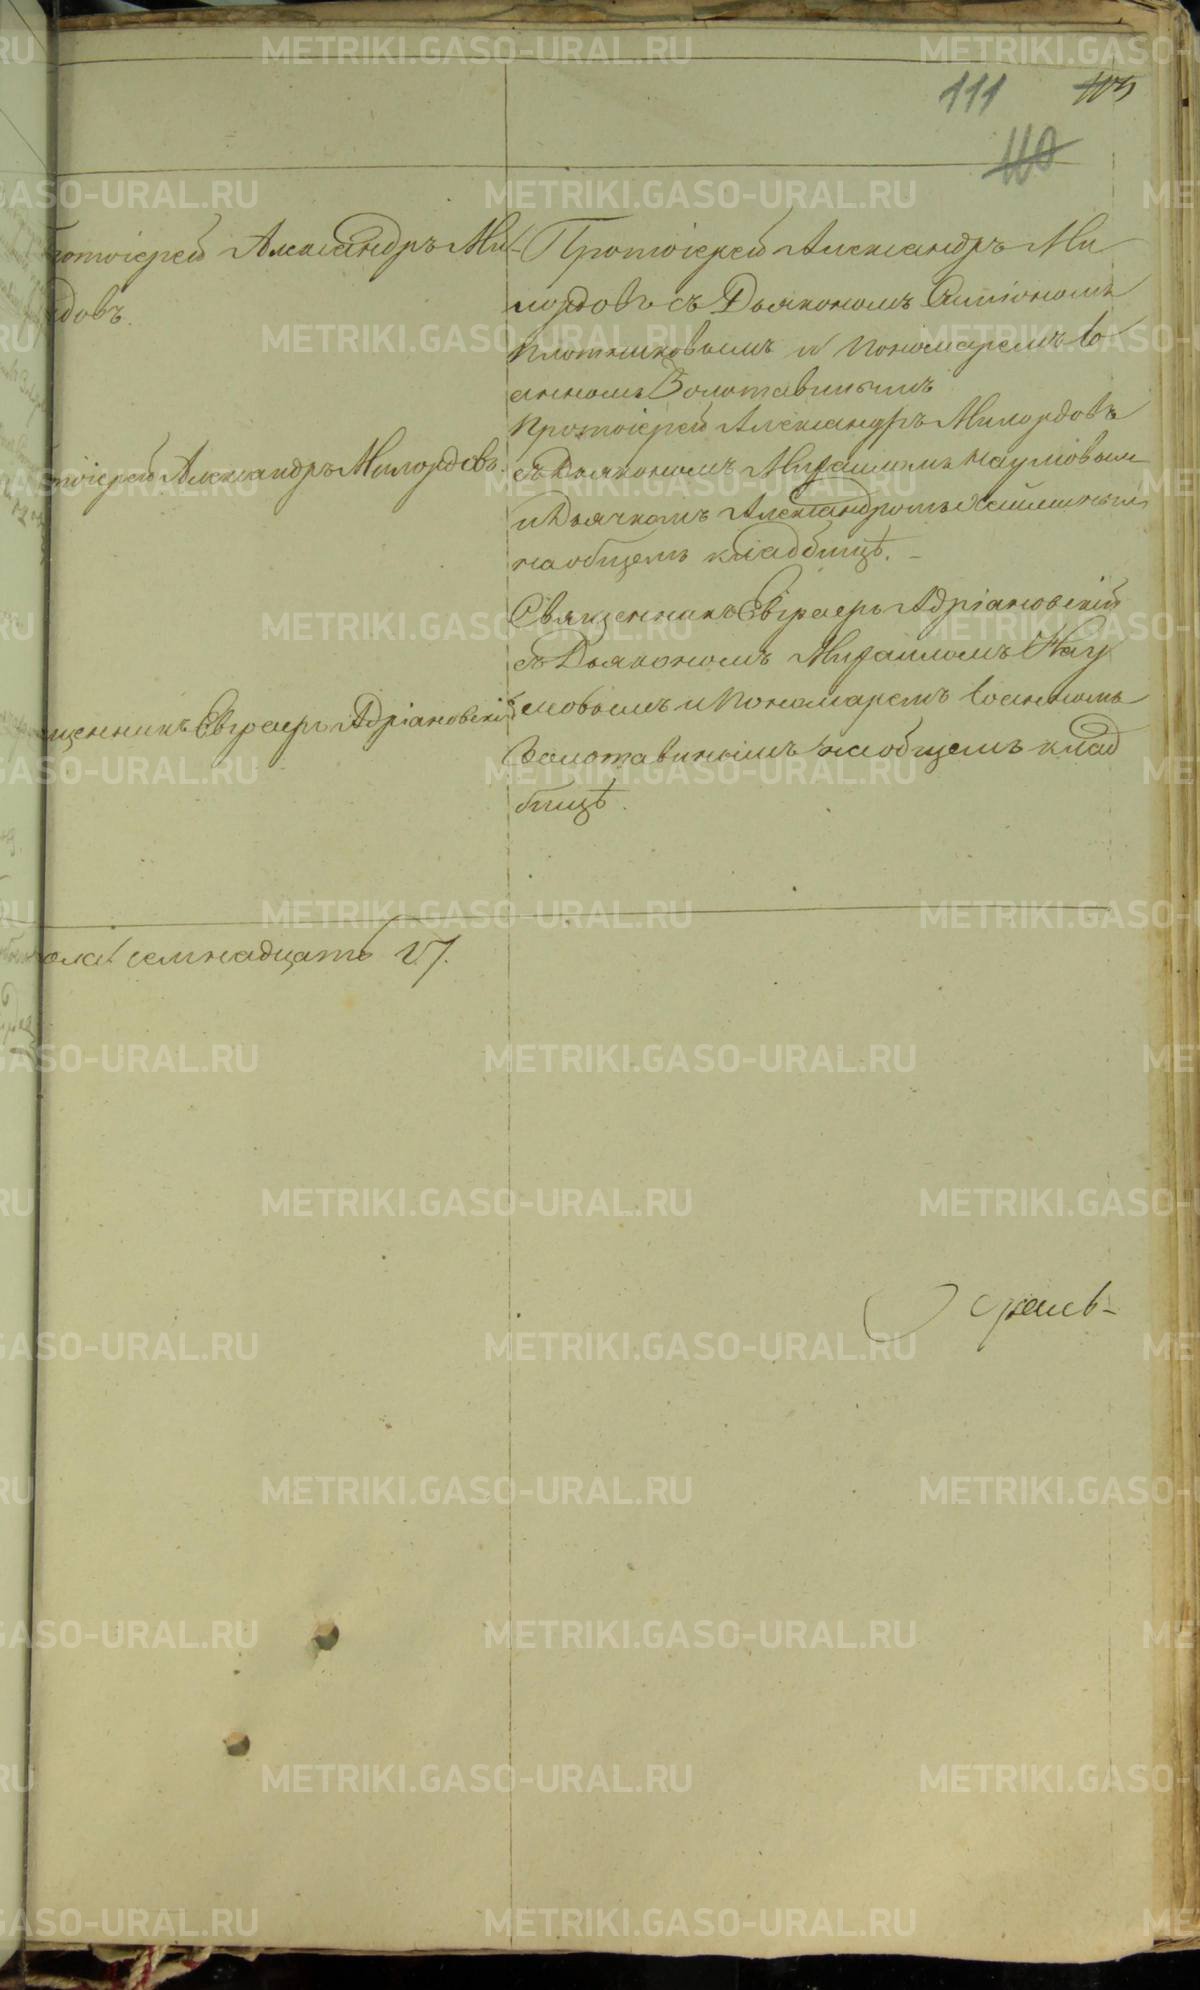 111
110
Протоіерей Александръ Ми-
ловъ.
Протоіерей Александръ Ми
лордовъ съ Дьякономъ Антономъ
Плотниковымъ и Пономаремъ Іо
анномъ Золотавинымъ
тоіерей Александръ Милордовъ.
Протоіерей Александръ Милордовъ
съ Дьякономъ Михаиломъ Наумовым
и Дьячкомъ Александромъ
на общемъ кладбищѣ.
щенникъ Евграфъ Адріановскій
Священникъ Евграфъ Адріановскій
съ Дьякономъ Михаиломъ Нау
мовымъ и Пономаремъ Іоанномъ
Золотавинымъ на общемъ клад
бищѣ.
пола семнадцать 17.
METRIKI.GASO-URAL.RU